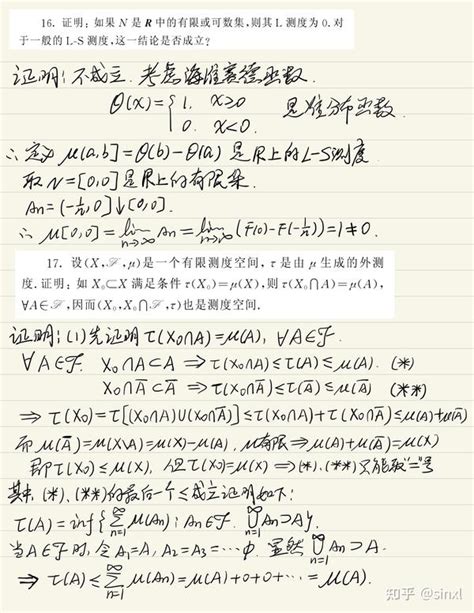 16. 证明：如果 N 是 R 中的有限或可数集，则其 L 测度为 0. 对
于一般的 L-S 测度，这一结论是否成立？
证明：不成立. 考虑海维赛德函数.
θ(x)={1, x≥0 是准分布函数
0. x<0.
∴ 定义 μ(a,b]=θ(b)-θ(a) 是R上的L-S测度
取 N=[0,0]是R上的有限集.
An=(-1/n,0]↓[0,0].
∴ μ[0,0]=lim n→∞ An=lim n→∞ (F(0)-F(-1/n))=1≠0.
17. 设(X,ℱ,μ)是一个有限测度空间，τ 是由 μ 生成的外测
度. 证明：如 X₀⊂X 满足条件 τ(X₀)=μ(X)，则 τ(X₀∩A)=μ(A)，
∀A∈ℱ，因而(X₀,X₀∩ℱ,τ)也是测度空间.
证明：(1)先证明 τ(X₀∩A)=μ(A), ∀A∈ℱ.
∀A∈ℱ. X₀∩A⊂A ⇒ τ(X₀∩A)≤τ(A)≤μ(A). (*)
X₀∩A̅⊂A̅ ⇒ τ(X₀∩A̅)≤τ(A̅)≤μ(A̅) (**)
⇒ τ(X₀)=τ[(X₀∩A)∪(X₀∩A̅)]≤τ(X₀∩A)+τ(X₀∩A̅)≤μ(A)+μ(A̅)
而 μ(A̅)=μ(X\A)=μ(X)-μ(A), μ有限⇒μ(A)+μ(A̅)=μ(X)
即τ(X₀)≤μ(X), 但τ(X₀)=μ(X) ⇒(*), (**)只能取"="号
其中, (*), (**)的最后一个≤成立证明如下:
τ(A)=inf{∑_{n=1}^∞ μ(An); An∈ℱ. ⋃_{n=1}^∞ An⊃A}.
当A∈ℱ时, 令A₁=A, A₂=A₃=⋯ϕ. 显然 ⋃_{n=1}^∞ An⊃A.
⇒ τ(A)≤∑_{n=1}^∞ μ(An)=μ(A)+0+0+⋯=μ(A).
知乎 @sinxl